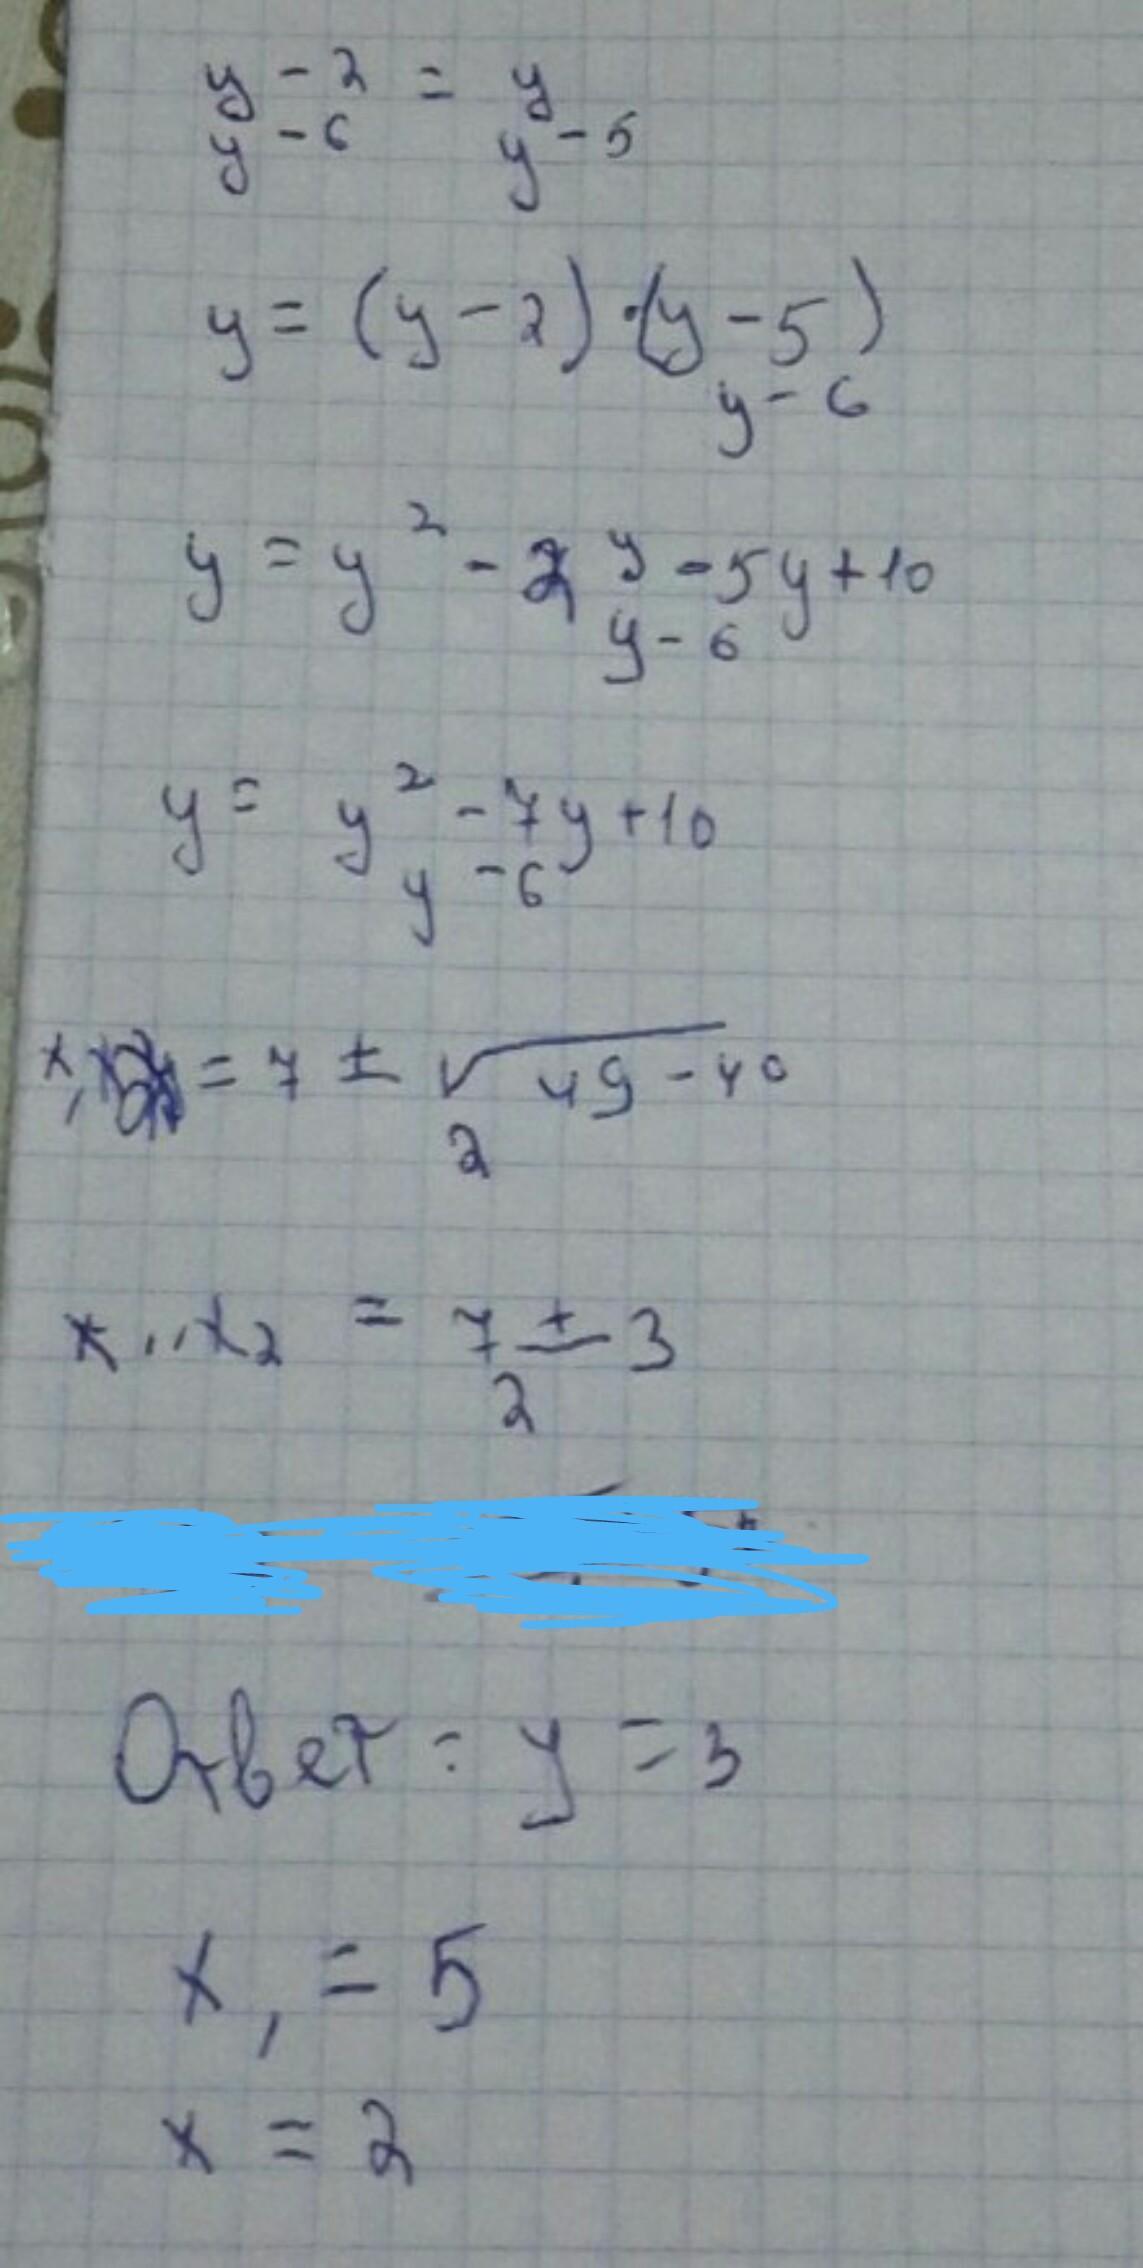 y - 2 = y
y - 6 y - 5
y = (y - 2) · (y - 5)
y - 6
y = y² - 2y - 5y + 10
y - 6
y = y² - 7y + 10
y - 6
= 7 ± √49 - 40
2
x₁, x₂ = 7 ± 3
2
Ответ: y = 3
x₁ = 5
x = 2